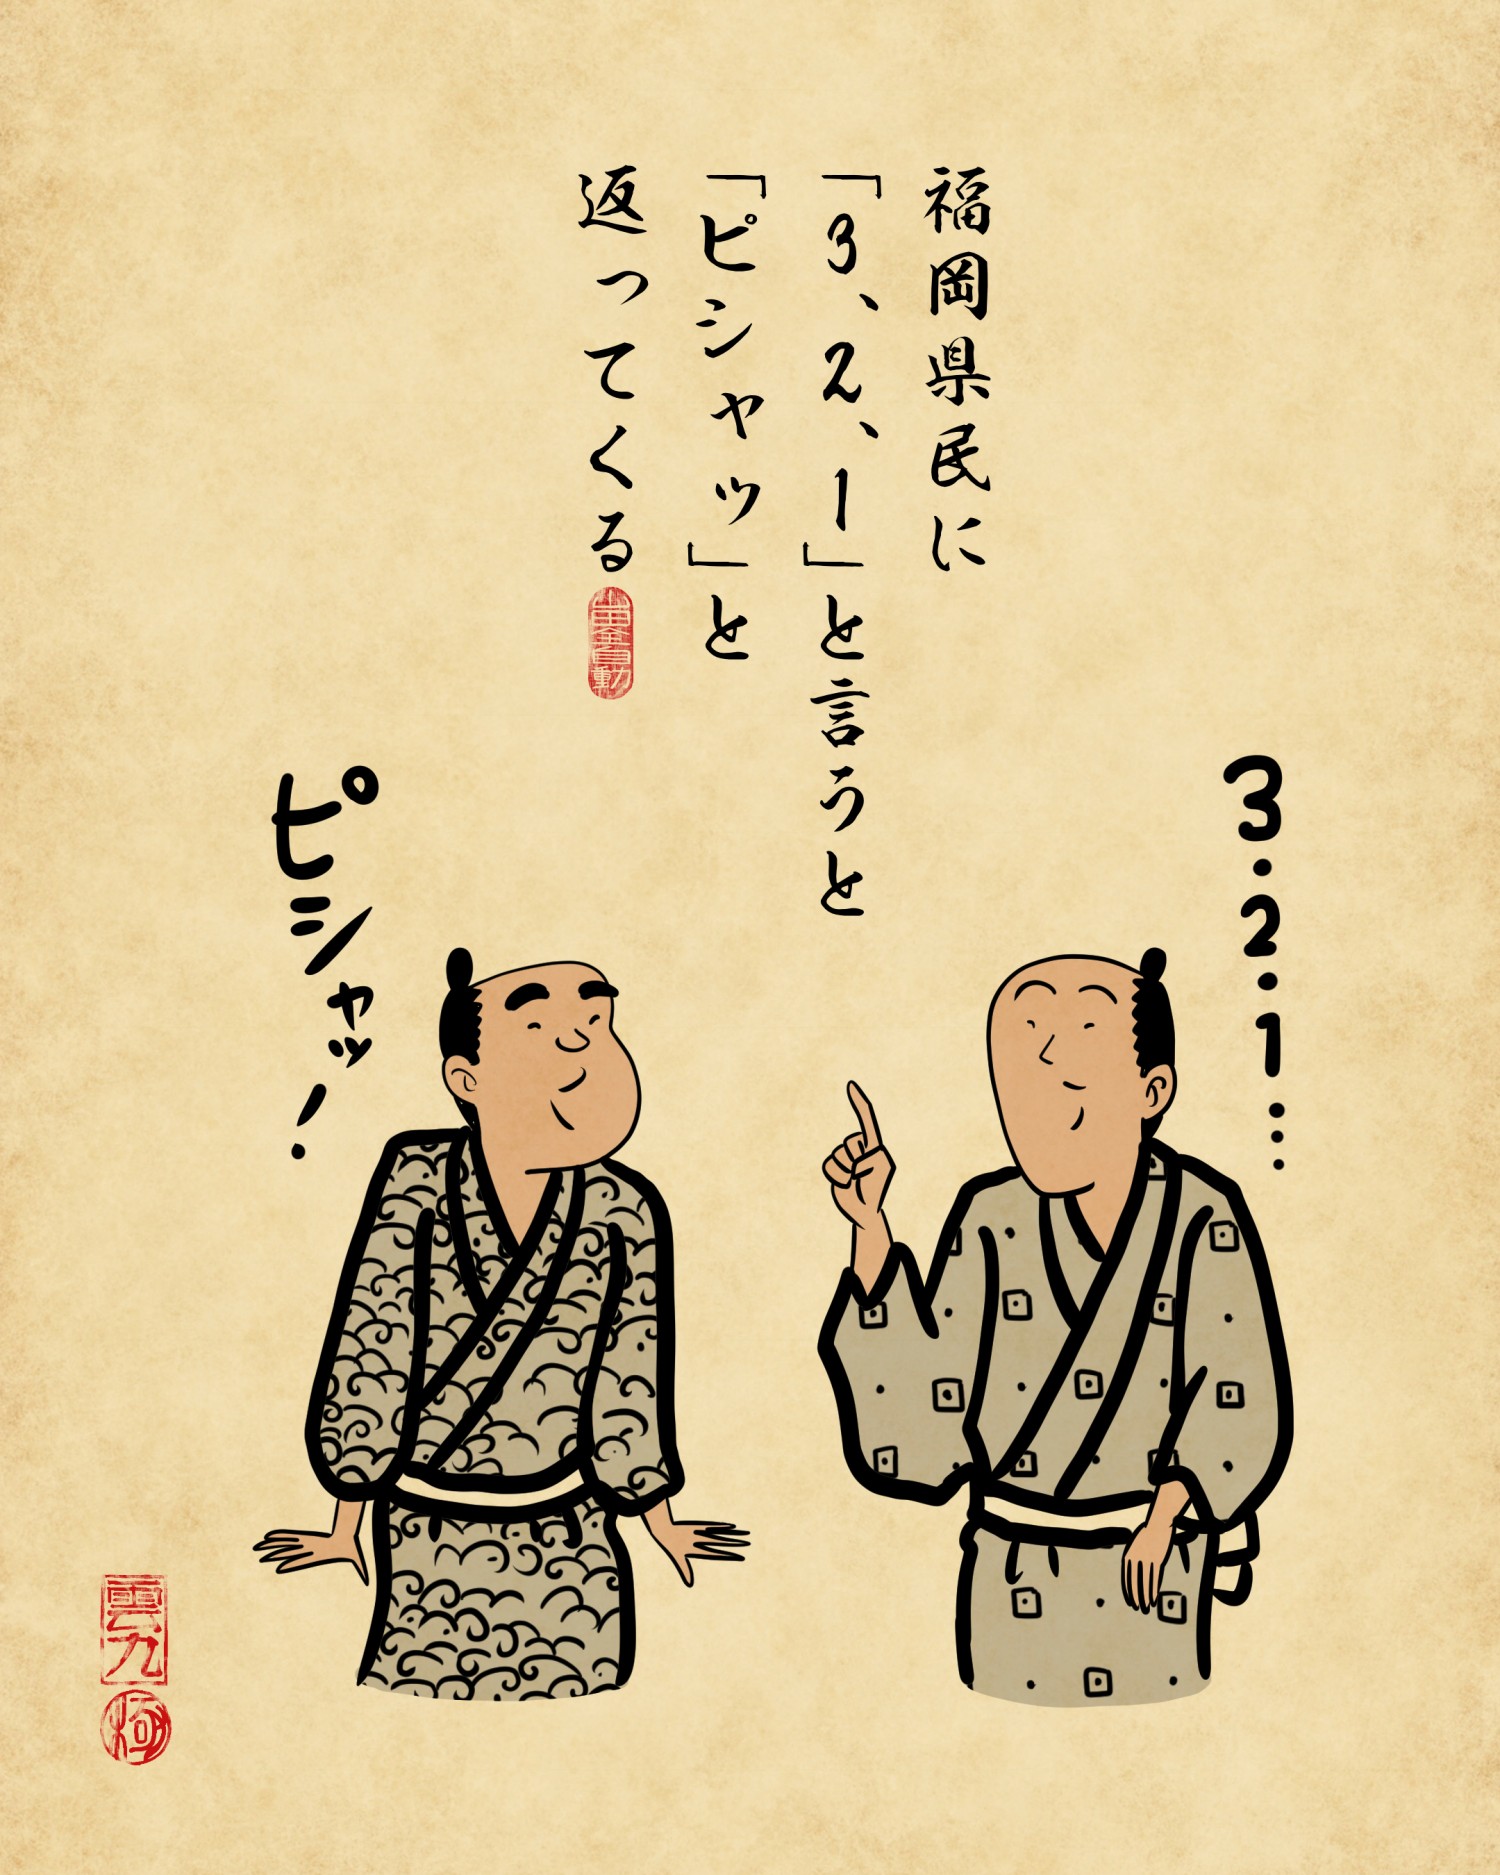 福岡県民に
「3、2、1」と言うと
「ピシャッ」と
返ってくる
山田全自動
3・2・1…
ピシャッ!
雲九
極